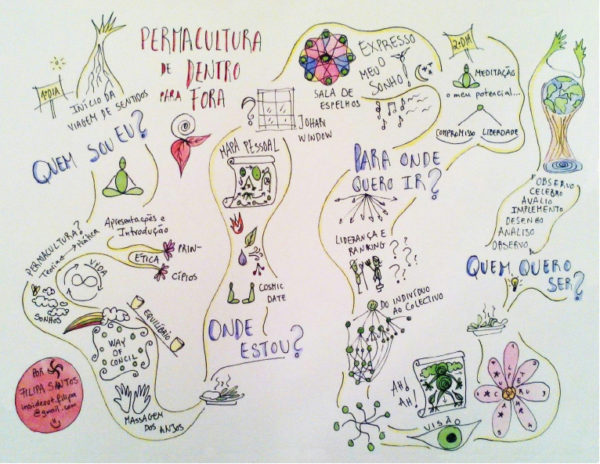 PERMACULTURA
DE DENTRO
PARA FORA
1º DIA
INÍCIO DA
VIAGEM DE SENTIDOS
QUEM SOU EU?
Apresentações e
Introdução
PERMACULTURA?
Teoria Prática
ÉTICA
PRIN-
CÍPIOS
VIDA
SONHOS
EQUILÍBRIO
WAY
OF
CONCIL
MASSAGEM
DOS ANJOS
POR
FILIPA SANTOS
insideout.filipa
@gmail.com
ONDE
ESTOU?
COSMIC
DATE
MAPA PESSOAL
?
JOHARI
WINDOW
SALA DE
ESPELHOS
EXPRESSO
O MEU
SONHO!
PARA ONDE
QUERO IR?
LIDERANÇA E
RANKING
???
???
DO INDIVÍDUO
AO COLECTIVO
AH!
AH!
VISÃO
2º DIA
MEDITAÇÃO
o meu potencial...
COMPROMISSO LIBERDADE
OBSERVO
CELEBRO
AVALIO
IMPLEMENTO
DESENHO
ANALISO
OBSERVO
QUEM QUERO
SER?